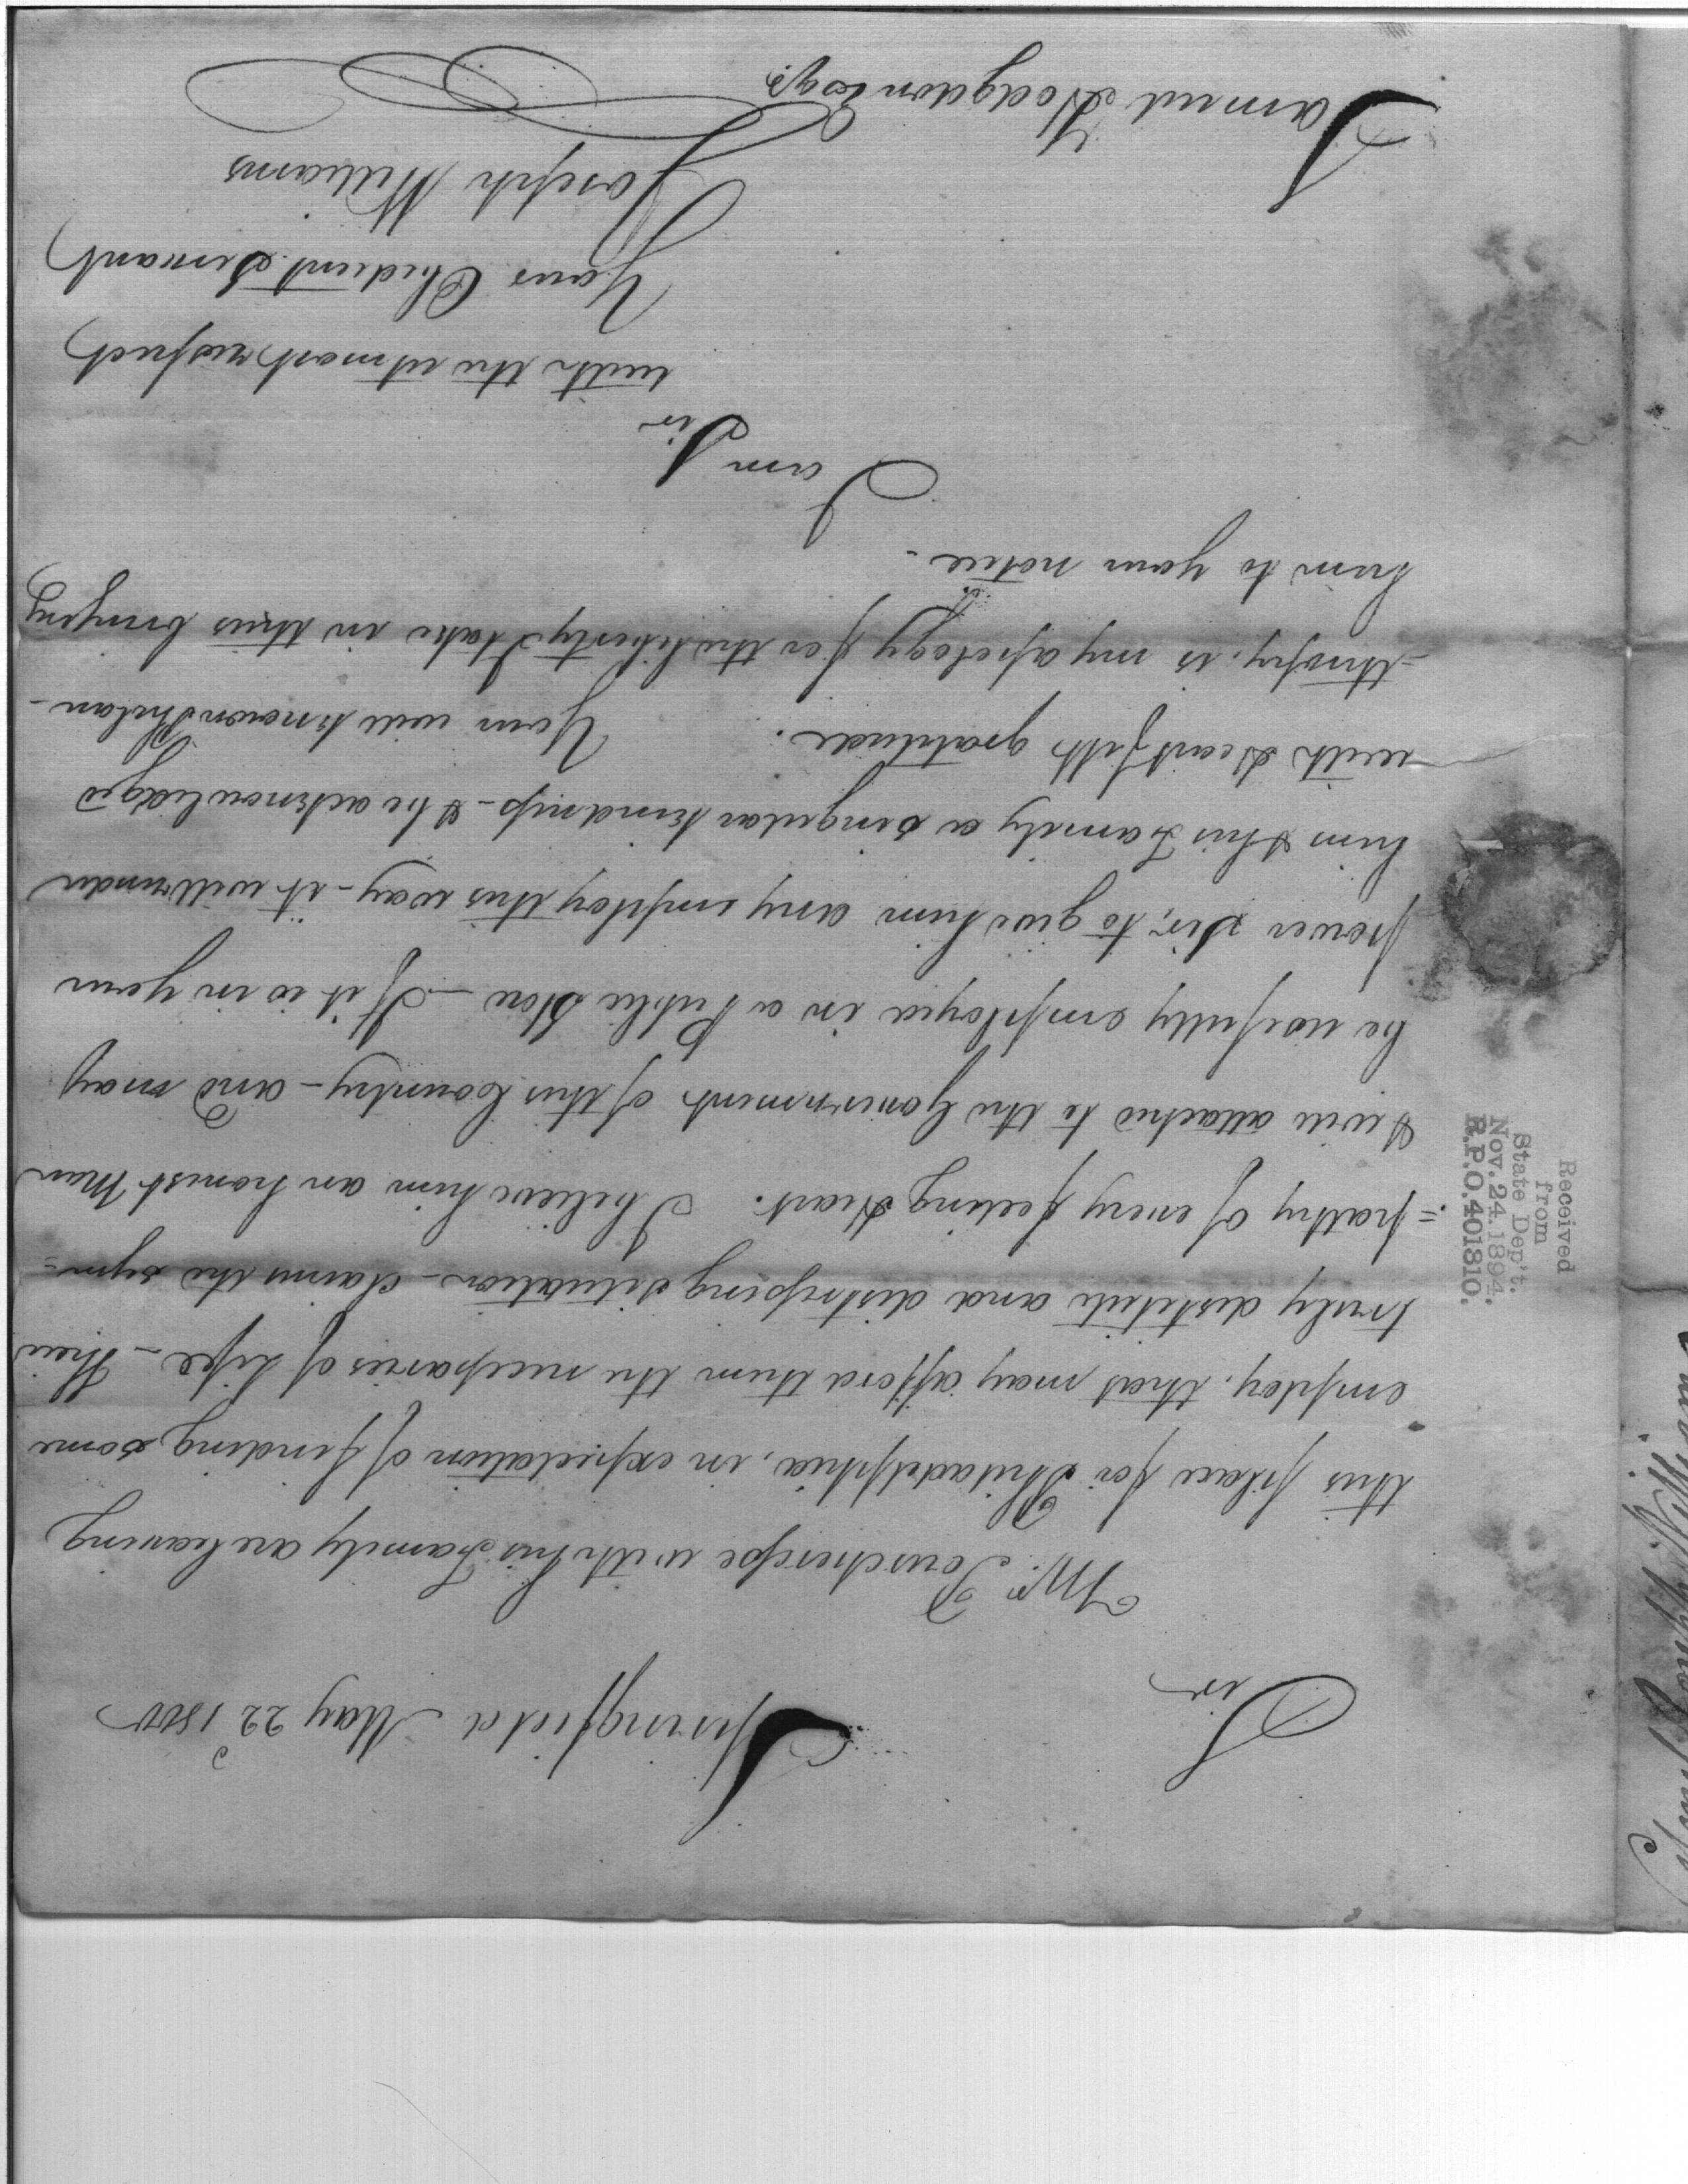 Springfield May 22d 1800
Sir
Mr. Pouscherefse with his Family are leaving
this place for Philadelphia, in expectation of finding some
employ, that may afford them the necessaries of Life – Their
truly destitute and distressing situation – claims the sym=
=pathy of every feeling Heart. I believe him an honest Man
& well attached to the Government of this Country – and may
be usefully employed in a Public Store – If it is in your
power Sir, to give him any employ this way – it will render
him & his Family a singular kindness – & be acknowledged
with Heart felt gratitude. Your well known Philan-
-thropy, is my apology for the liberty I take in thus bringing
him to your notice –
I am Sir
with the utmost respect
Your Obedient Servant
Joseph Williams
Samuel Hodgdon Esqr.
Received
from
State Dep't.
Nov. 24. 1894.
R.P.O. 401810.
Joseph Williams